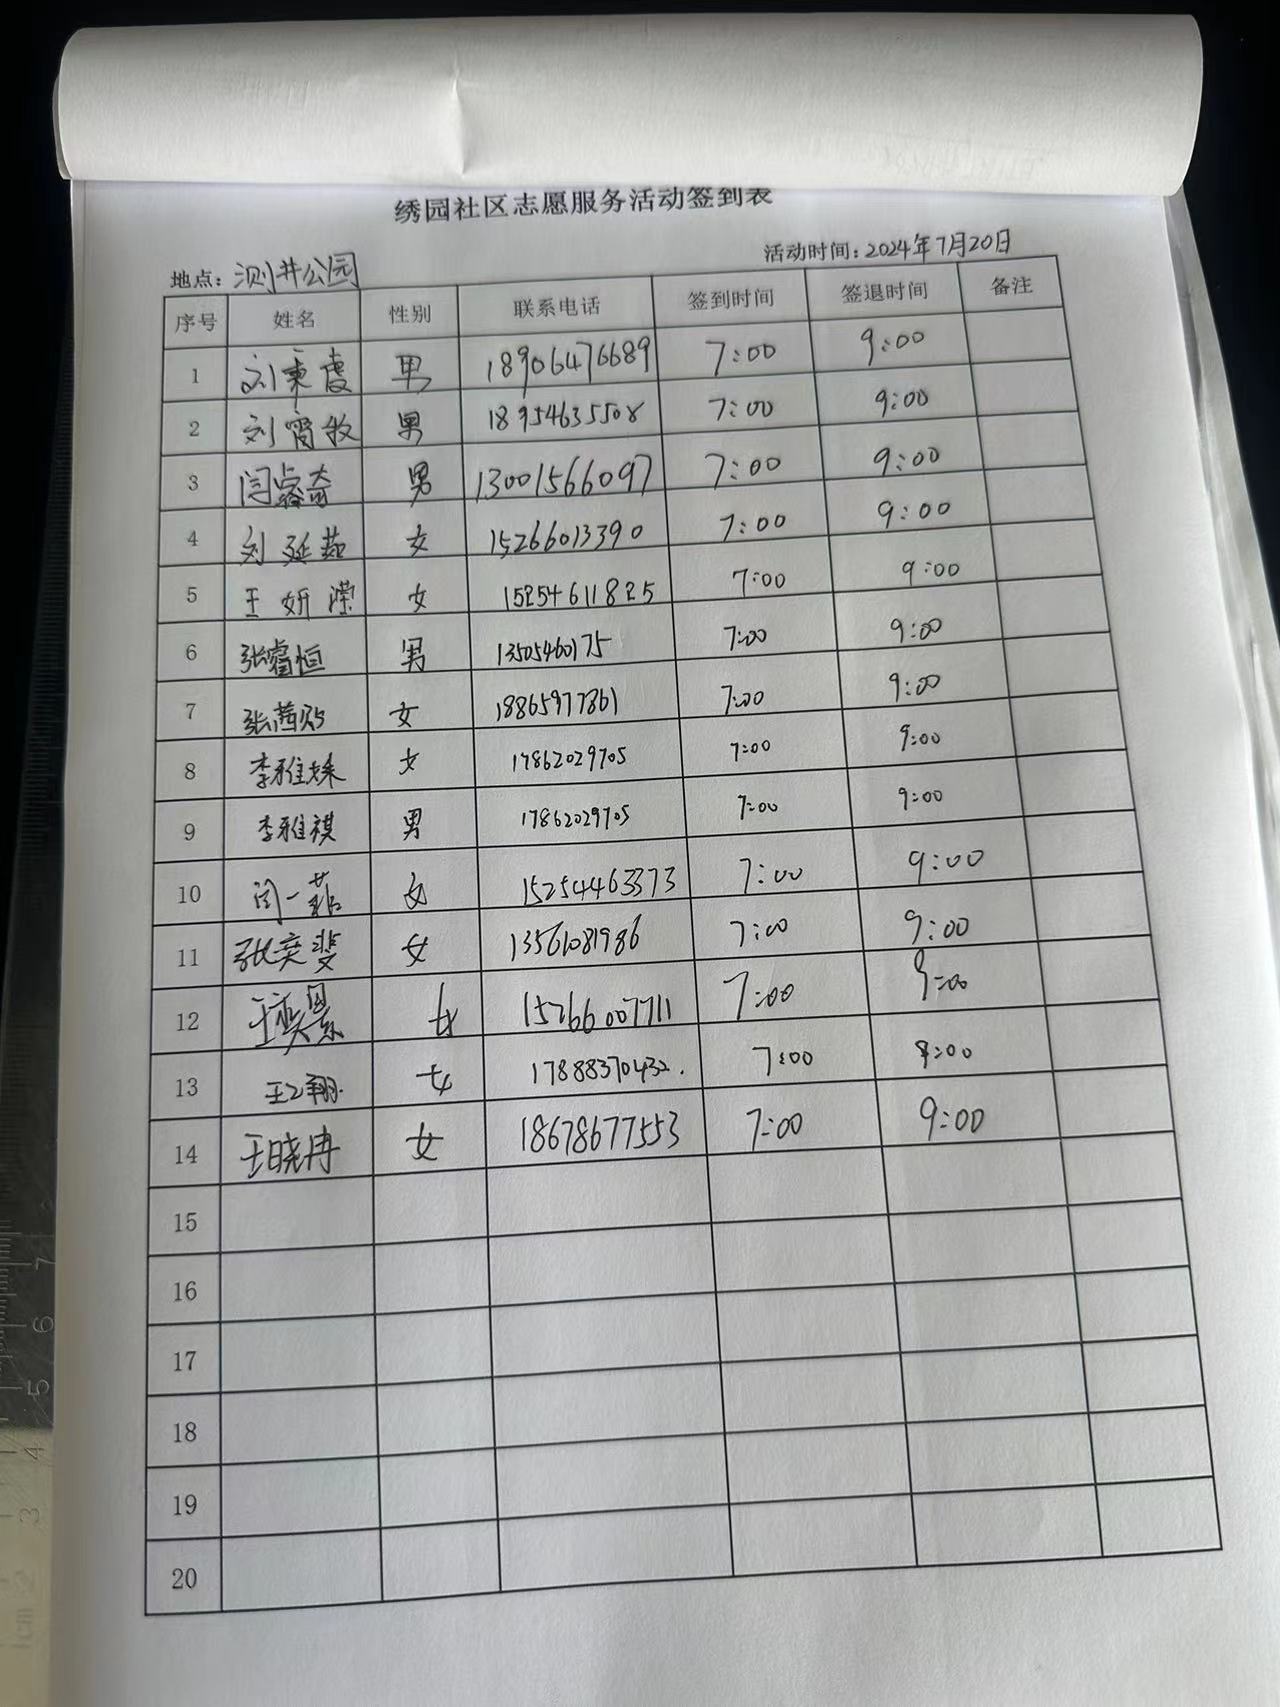 绣园社区志愿服务活动签到表
地点：测井公园 活动时间：2024年7月20日
序号 姓名 性别 联系电话 签到时间 签退时间 备注
1 刘秉虔 男 18906476689 7:00 9:00
2 刘宵牧 男 18954635508 7:00 9:00
3 闫睿奇 男 13001566097 7:00 9:00
4 刘延茹 女 15266013390 7:00 9:00
5 王妍滢 女 15254611825 7:00 9:00
6 张睿恒 男 13505460175 7:00 9:00
7 张茜贻 女 18865977861 7:00 9:00
8 李雅姝 女 17862029705 7:00 9:00
9 李雅祺 男 17862029705 7:00 9:00
10 闫一菲 女 15254463373 7:00 9:00
11 张奕斐 女 13561081986 7:00 9:00
12 王奕景 女 15266007711 7:00 9:00
13 王乙翔 女 17888370432. 7:00 9:00
14 王晓冉 女 18678677553 7:00 9:00
15
16
17
18
19
20
7
6
5
4
3
2
1cm